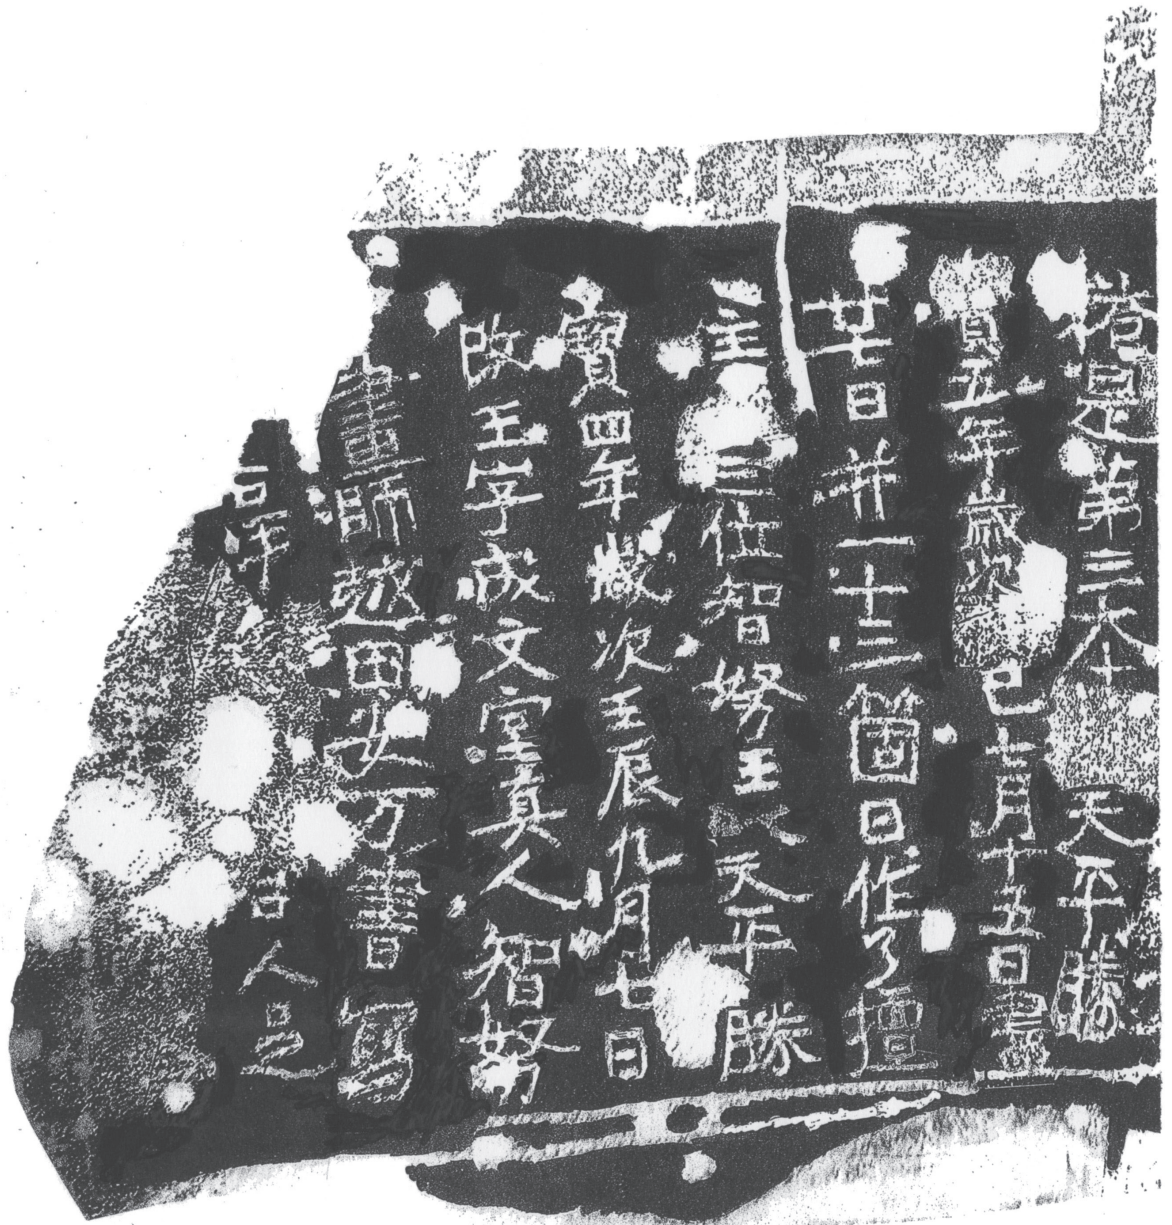 搭是第三本 天平勝
寶五年歳次 巳七月十五日盡
廿七日并一十三箇日作了檀
主 三位智努王以天平勝
寶四年歳次壬辰九月七日
改王字成文室真人智努
畫師越田安万書寫
石手 呂人足